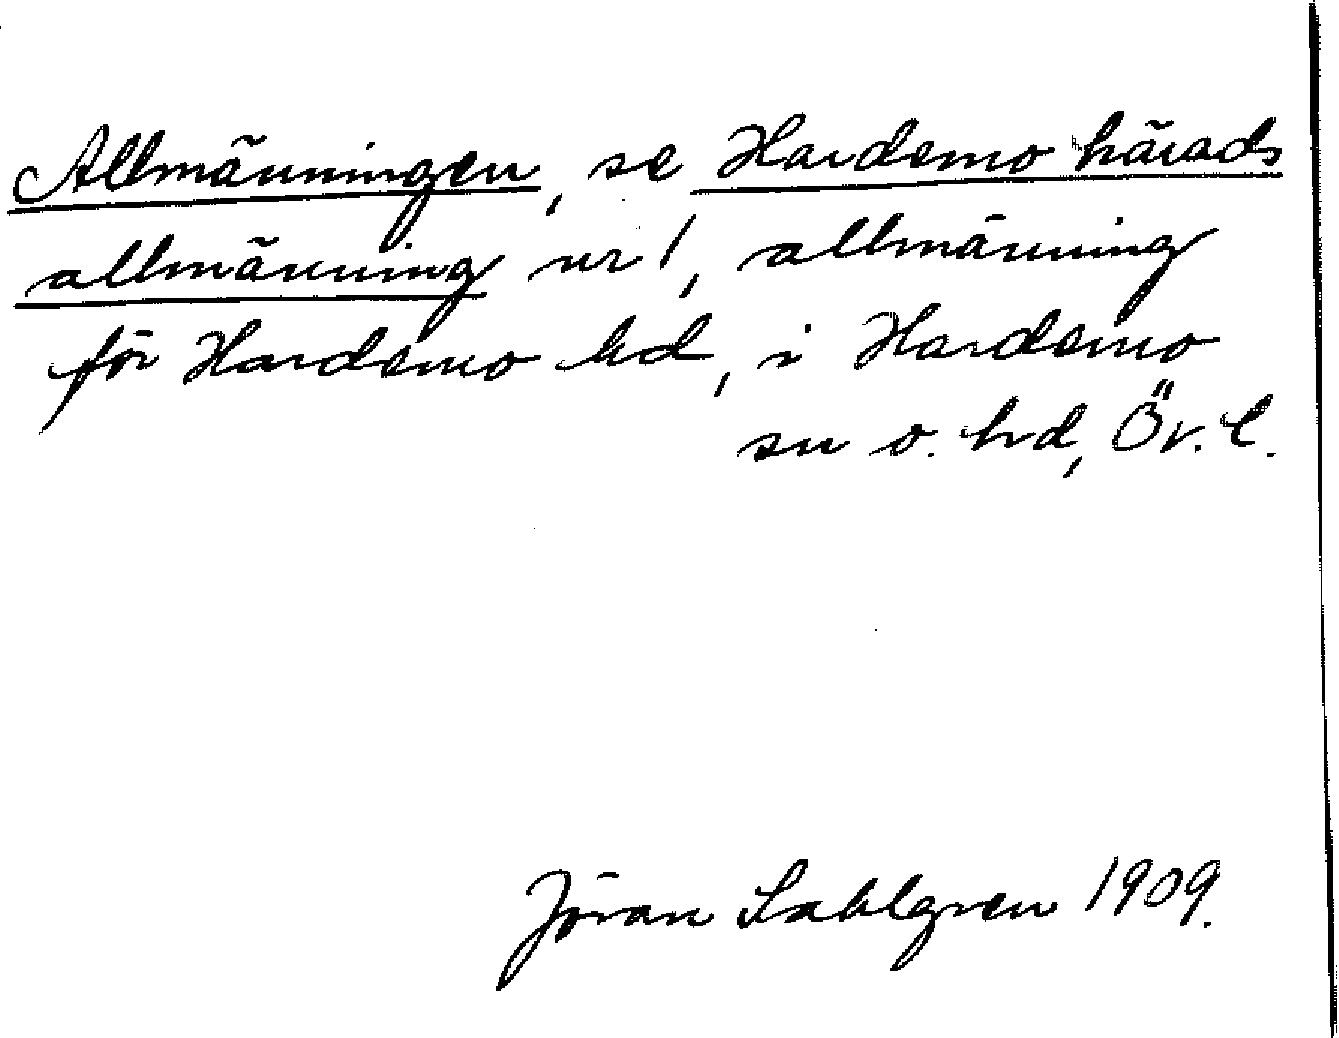 Allmänningen, se Hardemo härads
allmänning nr 1, allmänning
för Hardemo hd, i Hardemo
sn o. hd, Ör. l.
Jöran Sahlgren 1909.